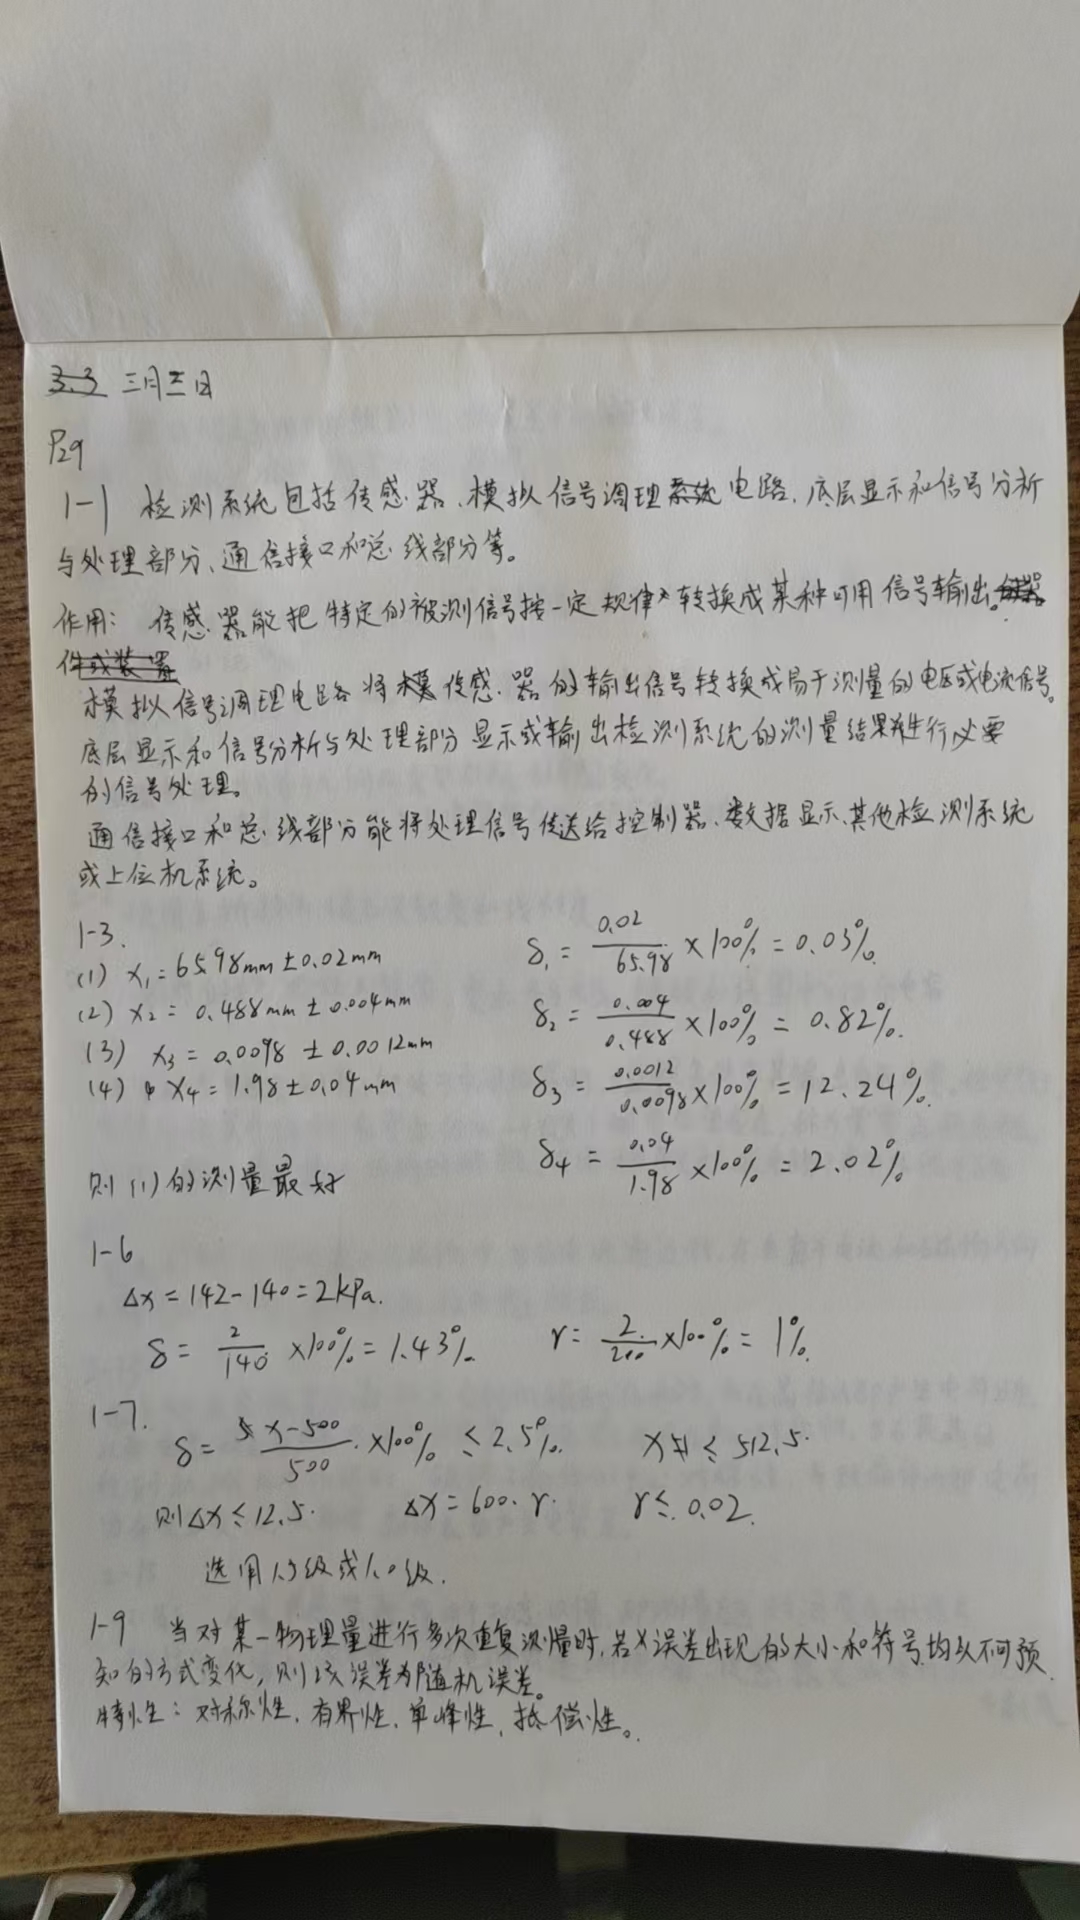 三月三日
P29
1-1 检测系统包括传感器、模拟信号调理电路、底层显示和信号分析
与处理部分、通信接口和总线部分等。
作用: 传感器能把特定的被测信号按一定规律转换成某种可用信号输出。
模拟信号调理电路将传感器的输出信号转换成易于测量的电压或电流信号。
底层显示和信号分析与处理部分显示或输出检测系统的测量结果并进行必要
的信号处理。
通信接口和总线部分能将处理信号传送给控制器、数据显示、其他检测系统
或上位机系统。
1-3.
(1) x₁=65.98mm±0.02mm δ₁= 0.02/65.98 ×100%=0.03%.
(2) x₂= 0.488mm±0.004mm δ₂= 0.004/0.488 ×100%= 0.82%.
(3) x₃=0.0098 ±0.0012mm δ₃= 0.0012/0.0098 ×100%=12.24%.
(4) x₄=1.98±0.04mm δ₄= 0.04/1.98 ×100%= 2.02%
则(1)的测量最好
1-6
Δx=142-140=2kPa.
δ= 2/140 ×100%=1.43%. r= 2/200 ×100%= 1%.
1-7.
δ= x-500/500 ×100% ≤2.5%. x ≤ 512.5.
则Δx≤12.5. Δx=600·r. r≤0.02.
选用1.5级或1.0级.
1-9 当对某一物理量进行多次重复测量时,若误差出现的大小和符号均以不可预
知的方式变化,则该误差为随机误差。
特性: 对称性、有界性、单峰性、抵偿性。